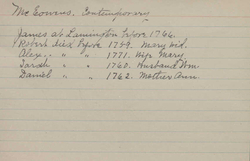 McEowens. Contemporary
James at Lamington before 1766.
Robert died before 1799. Mary wid.
Alex. " " 1771. Wife Mary.
Sarah " " 1760. Husband Wm.
Daniel " " 1762. Mother Ann